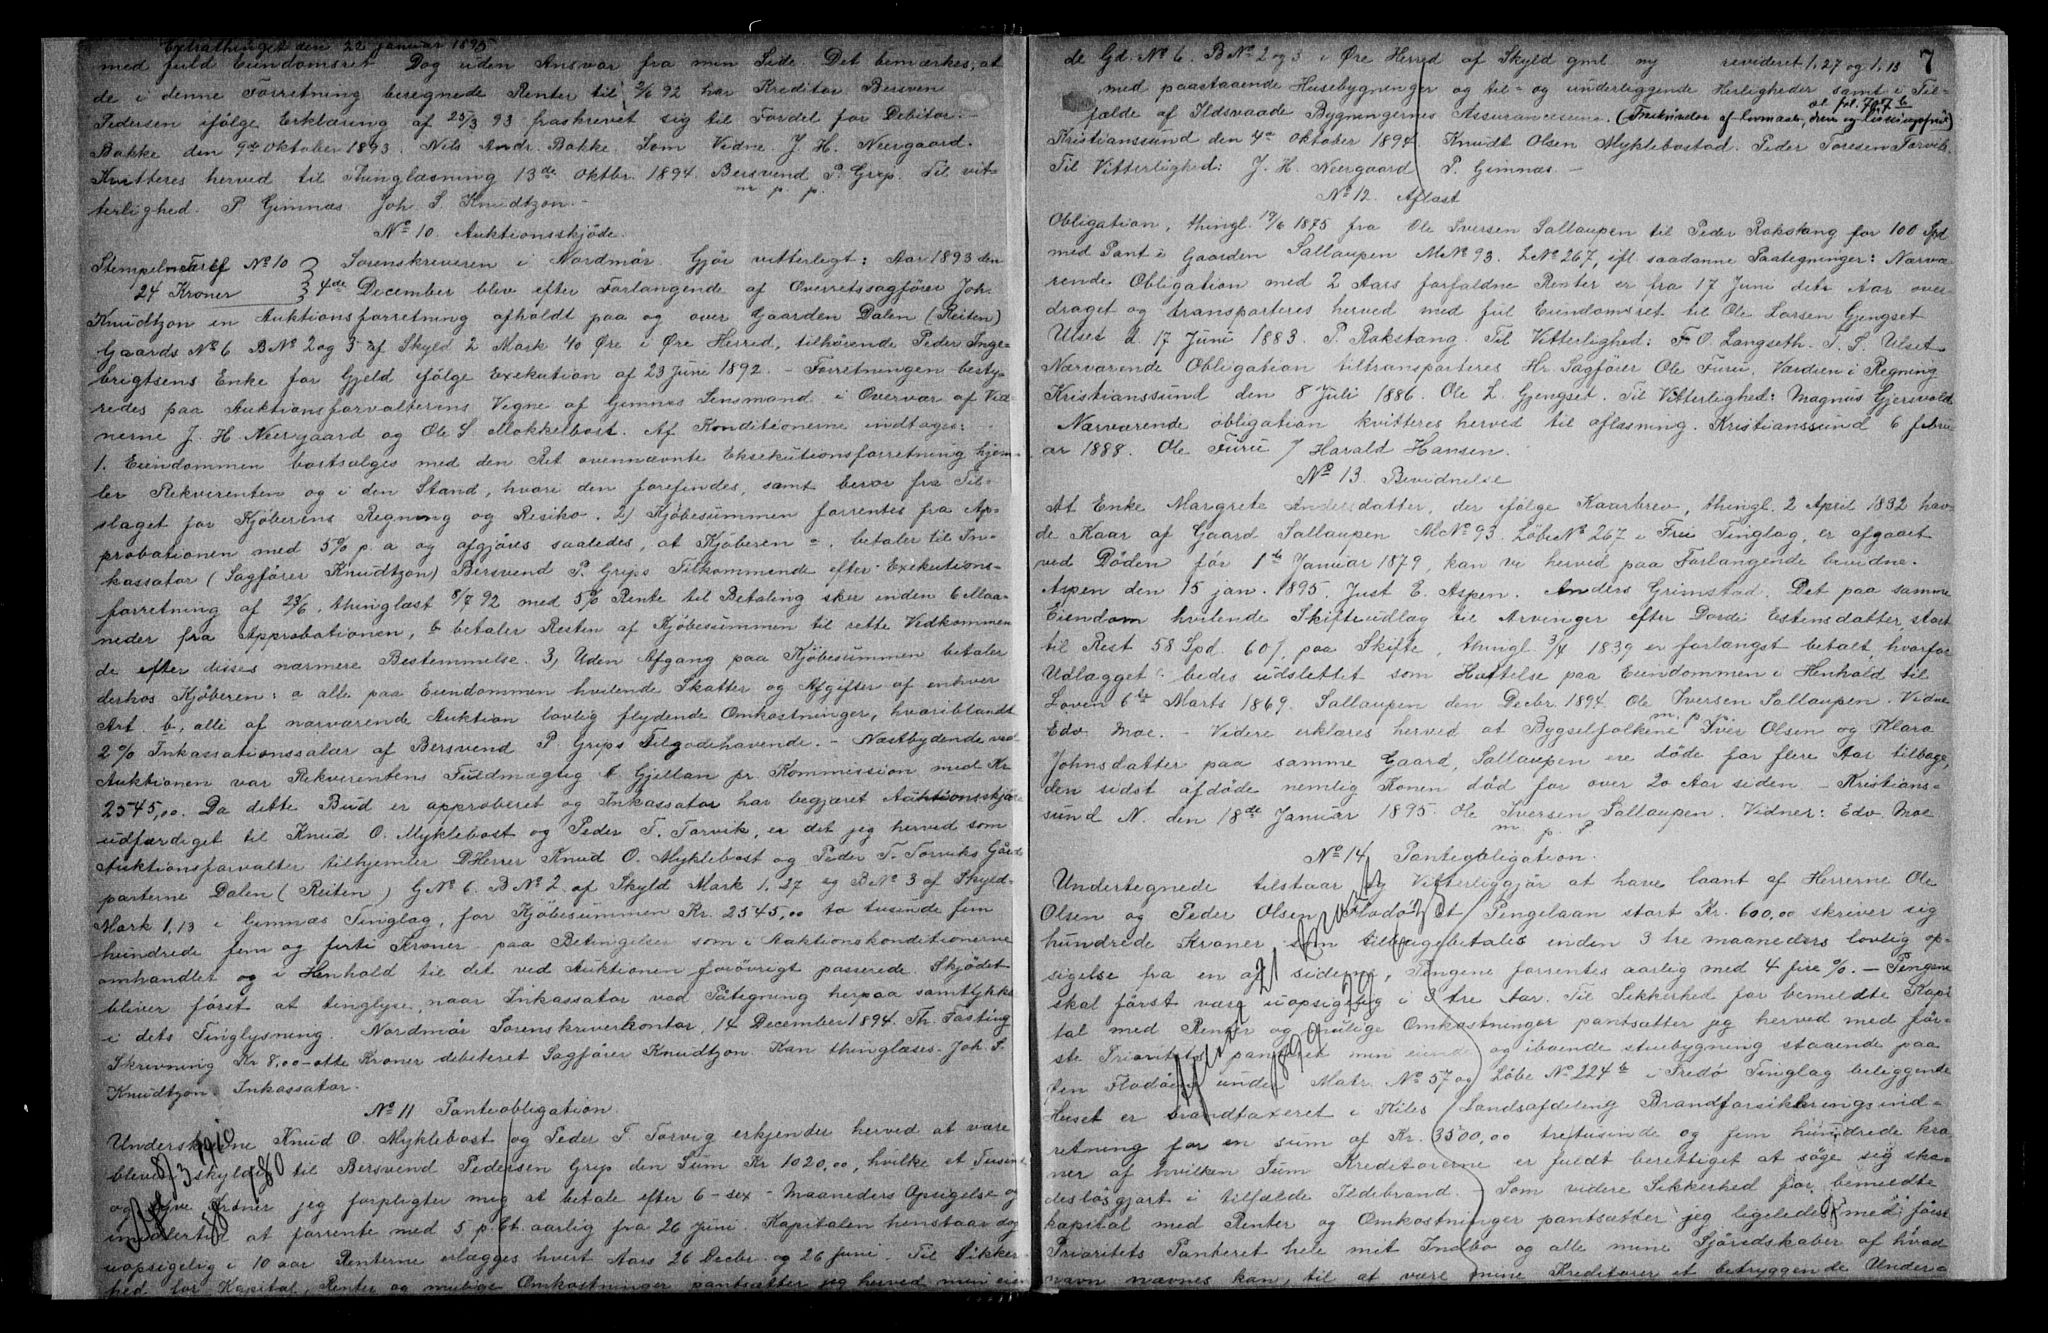 Extrathinget den 22 januar 1895
med fuld Eiendomsret Dog uden Ansvar fra min Side. Det bemærkes, at
de i denne Forretning beregnede Renter til 2/6 92 har Kreditor Bersven
Pedersen ifølge Erklæring af 25/3 93 fraskrevet sig til Fordel for Debitor. -
Bakke den 9de Oktober 1893. Nils Andr. Bakke. Som Vidne. J. H. Neergaard.
Kvitteres herved til Thinglæsning 13de Oktbr. 1894. Bersvend P. Grip. Til vit-
m. p. p.
terlighed. P. Gimnæs. Joh. S. Knudtzon. -
No 10. Auktionsskjøde.
Stempelm. Tarif No 10 Sorenskriveren i Nordmør. Gjør vitterligt: Aar 1893 den
24 Kroner 4de December blev efter Forlangende af Overretssagfører Joh.
Knudtzon en Auktionsforretning afholdt paa og over Gaarden Dalen (Reiten)
Gaards No 6 B No 2 og 3 af Skyld 2 Mark 40 Øre i Øre Herred, tilhørende Peder Inge-
brigtsens Enke for Gjeld ifølge Exekution af 23 Juni 1892. - Forretningen besty-
redes paa Auktionsforvalterens Vegne af Gimnes Lensmand i Overvær af Vid-
nerne J. H. Neergaard og Ole S. Mokkelbost. Af Konditionerne indtages:
1. Eiendommen bortsælges med den Ret ovennævnte Eksekutionsforretning hjem-
ler Rekvirenten og i den Stand, hvori den forefindes, samt beror fra Til-
slaget for Kjøberens Regning og Risiko. 2) Kjøbesummen forrentes fra Ap-
probationen med 5% p. a og afgjøres saaledes, at Kjøberen a. betaler til In-
kassator (Sagfører Knudtzon) Bersvend P. Grips Tilkommende efter Exekutions-
forretning af 23/6. thinglæst 8/7 92 med 5% Rente til Betaling sker inden 6 Maa-
neder fra Approbationen, b betaler Resten af Kjøbesummen til rette Vedkommen
de efter disses nærmere Bestemmelse. 3, Uden Afgang paa Kjøbesummen betaler
derhos Kjøberen: a alle paa Eiendommen hvilende Skatter og Afgifter af enhver
Art. b, alle af nærværende Auktion lovlig flydende Omkostninger, hvoriblandt
2% Inkassationssalær af Bersvend P. Grips Tilgodehavende. - Næstbydende ved
Auktionen var Rekvirentens Fuldmægtig Gjellan pr. Kommission med Kr
2545,00. Da dette Bud er approberet og Inkassator har begjæret Auktionsskjøde
udfærdiget til Knud O. Myklebost og Peder T. Torvik, er det jeg herved som
Auktionsforvalter tilhjemler D'Herrer Knud O. Myklebost og Peder T. Torviks Gårds-
parterne Dalen (Reiten) G No 6. B No 2 af Skyld Mark 1,27 og B No 3 af Skyld-
Mark 1,13 i Gimnæs Tinglag, for Kjøbesummen Kr. 2545,00 to tusinde fem
hundrede fem og førti Kroner paa Betingelser som i Auktionskonditionerne
omhandlet og i Henhold til det ved Auktionen forøvrigt passerede Skjødet
bliver først at tinglyse, naar Inkassator ved Påtegning herpaa samtykke
i dets Tinglysning. Nordmør Sorenskriverkontor, 14 December 1894. Th. Fasting
Skrivning Kr 8,00 - otte Kroner debiteret Sagfører Knudtzon. Kan thinglæses. Joh. S.
Knudtzon. Inkassator.
No 11 Panteobligation.
Underskrevne Knud O. Myklebost og Peder T. Torvig erkjender herved at være
bleven skyldig til Bersvend Pedersen Grip den Sum Kr 1020,00, hvilke et Tusen
og tyve Kroner jeg forpligter mig at betale efter 6 - sex - Maaneders Opsigelse og
imidlertid at forrente med 5 p. Ct. aarlig fra 26 Juni. Kapitalen henstaar dog
uopsigelig i 10 aar Renterne erlægges hvert Aars 26 Decbr. og 26 Juni. Til Sikker-
hed for Kapital, Renter og mulige Omkostninger pantsætter jeg herved min eien
7
de Gd. No 6. B No 2 og 3 i Øre Herred af Skyld gml. ny revideret 1,27 og 1,13
med paastaaende Husebygninger og til- og underliggende Herligheder samt i Til-
fælde af Ildsvaade Bygningernes Assurancesum.
Kristianssund den 4de Oktober 1894. Knudt Olsen Myklebostad. Peder Toresen Torvik
Til Vitterlighed: J. H. Neergaard P. Gimnæs. -
No 12. Aflæst
Obligation, thingl. 17/6 1875 fra Ole Iversen Sallaupen til Peder Rokstang for 100 Spd
med Pant i Gaarden Sallaupen M No 93. L No 267, ifl. saadanne Paategninger: Nærvæ-
rende Obligation med 2 Aars forfaldne Renter er fra 17 Juni dete Aar over-
draget og transporteres herved med ful Eiendomsret til Ole Larsen Gjengset
Ulset d. 17 Juni 1883. P. Rokstang. Til Vitterlighed: F. O. Langseth. T. S. Ulset
Nærværende Obligation tiltransporteres Hr. Sagfører Ole Furu. Værdien i Regning
Kristianssund den 8 Juli 1886. Ole L. Gjengset. Til Vitterlighed: Magnus Gjersvold
Nærværende obligation kvitteres herved til aflæsning. Kristianssund 6 febru
ar 1888. Ole Furu / Harald Hansen.
No 13. Bevidnelse
At Enke Margrete Andersdatter, der ifølge Kaarbrev, thingl. 2 April 1832 hav-
de Kaar af Gaard Sallaupen M No 93. Løbe No 267 i Frei Tinglag, er afgaaet
ved Døden før 1te Januar 1879, kan vi herved paa Forlangende bevidne.
Aspen den 15 jan. 1895. Just E. Aspen. Anders Grimstad. Det paa samme
Eiendom hvilende Skifteudlag til Arvinger efter Dordi Estensdatter, stort
til Rest 58 Spd. 60 /. paa Skifte, thingl 3/4 1839 er forlangst betalt, hvorfor
Udlægget bedes udslettet som Heftelse paa Eiendommen i Henhold til
Loven 6te Marts 1869. Sallaupen den Decbr. 1894. Ole Iversen Sallaupen. Vidne
m. p.
Edv. Moe. - Videre erklæres herved at Bygselfolkene Iver Olsen og Klara
Johnsdatter paa samme Gaard, Sallaupen ere døde for flere Aar tilbage,
den sidst afdøde nemlig Konen død for over 20 Aar siden. - Kristians-
sund N. den 18de Januar 1895. Ole Iversen Sallaupen. Vidner: Edv. Moe
m. p. p
No 14. Panteobligation.
Undertegnede tilstaar og Vitterliggjør at have laant af Herrerne Ole
Olsen og Peder Olsen Flødø et Pengelaan stort Kr. 600,00 skriver sig
hundrede Kroner som tilbagebetales inden 3 tre maaneders lovlig op-
sigelse fra en af siderne, Pengene forrentes aarlig med 4 fire %. - Pengene
skal først være uopsigelig i 3 tre Aar. Til Sikkerhed for bemeldte Kapi
tal med Renter og mulige Omkostninger pantsætter jeg herved med før-
ste Prioritets panteret min eiende og iboende stuebygning staaende paa
øen Flødøen under Matr. No 57 og Løbe No 224b i Fredø Tinglag beliggende
Huset er brandtaxeret i Kiles Landsafdeling Brandforsikkringsind-
retning for en sum af Kr. 3500,00 tretusinde og fem hundrede kro
ner af hvilken Sum Kreditorerne er fuldt berettiget at søge sig ska-
desløsgjort i tilfælde Ildebrand. - Som videre Sikkerhed for bemeldte
kapital med Renter og Omkostninger pantsætter jeg ligeledes med først
Prioritets Panteret hele mit Indbo og alle mine Sjøredskaber af hvad
navn nævnes kan, til at være mine Kreditorer et betryggende Under-